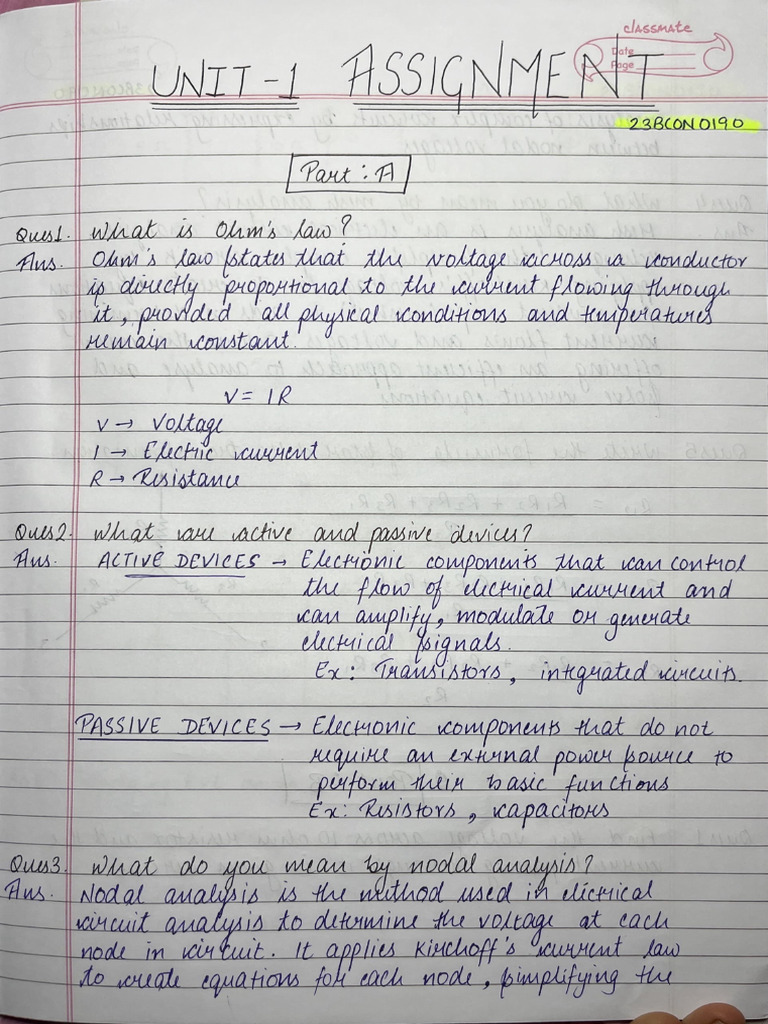 classmate
Date
Page
UNIT-1 ASSIGNMENT
23BCON0190
Part : A
Ques1. What is Ohm's law?
Ans. Ohm's law states that the voltage across a conductor
is directly proportional to the current flowing through
it, provided all physical conditions and temperatures
remain constant.
V = IR
V → Voltage
I → Electric current
R → Resistance
Ques2. What are active and passive devices?
Ans. ACTIVE DEVICES → Electronic components that can control
the flow of electrical current and
can amplify, modulate or generate
electrical signals.
Ex: Transistors, integrated circuits.
PASSIVE DEVICES → Electronic components that do not
require an external power source to
perform their basic functions
Ex: Resistors, capacitors
Ques3. What do you mean by nodal analysis?
Ans. Nodal analysis is the method used in electrical
circuit analysis to determine the voltage at each
node in circuit. It applies Kirchoff's current law
to create equations for each node, simplifying the